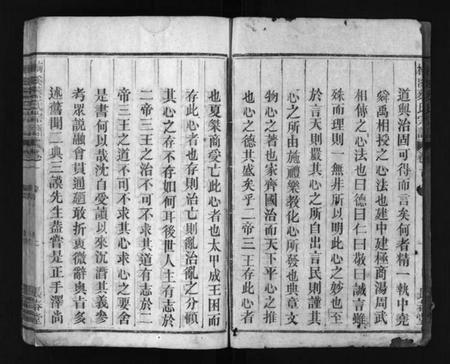 道與治固可得而言矣何者精一執中堯
舜禹相授之心法也建中建極商湯周武
相傳之心法也曰德曰仁曰敬曰誠言雖
殊而理則一無非所以明此心之妙也至
於言天則嚴其心之所自出言民則謹其
心之所由施禮樂教化心所發也典章文
物心之著也家齊國治而天下平心之推
也心之德其盛矣乎二帝三王存此心者
也夏桀商受亡此心者也太甲成王困而
存此心者也存則治亡則亂治亂之分顧
其心之存不存如何耳後世人主有志於
二帝三王之治不可不求其道有志於二
帝三王之道不可不求其心求心之要舍
是書何以哉沈自受讀以來沉潛其義參
考眾說融會貫通迺敢折衷微辭奧旨多
述舊聞二典三謨先生蓋嘗是正手澤尚
長春堂